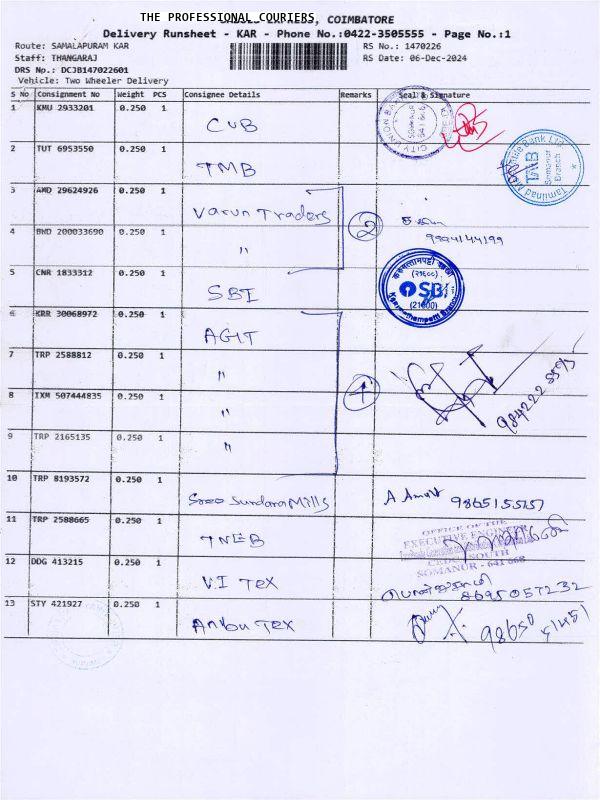 THE PROFESSIONAL COURIERS
COIMBATORE
Delivery Runsheet - KAR - Phone No.:0422-3505555 - Page No.:1
Route: SAMALAPURAM KAR RS No.: 1470226
Staff: THANGARAJ RS Date: 06-Dec-2024
DRS Np.: DCJB147022601
Vehicle: Two Wheeler Delivery
S No Consignment No Weight PCS Consignee Details Remarks Seal & Signature
1 KMU 2933201 0.250 1 CUB
CITY UNION BANK
2 TUT 6953550 0.250 1 TMB
Tamilnad Mercantile Bank Ltd TMB Somanur Branch
3 AWD 29624926 0.250 1 Varun Traders
2
4 BWD 200033690 0.250 1 "
5 CNR 1833312 0.250 1 SBI
(२१६००) SBI (21600)
6 KRR 30068972 0.250 1 AGIT
7 TRP 2588812 0.250 1 "
4
8 IXM 507444835 0.250 1 "
9 TRP 2165135 0.250 1 "
10 TRP 8193572 0.250 1 Sree Sundara Mills
11 TRP 2588665 0.250 1 TNEB
OFFICE OF THE
EXECUTIVE ENGINEER
SOUTH
SOMANUR - 641 668
12 DDG 413215 0.250 1 V.I Tex 8695057232
13 STY 421927 0.250 1 Anbu Tex